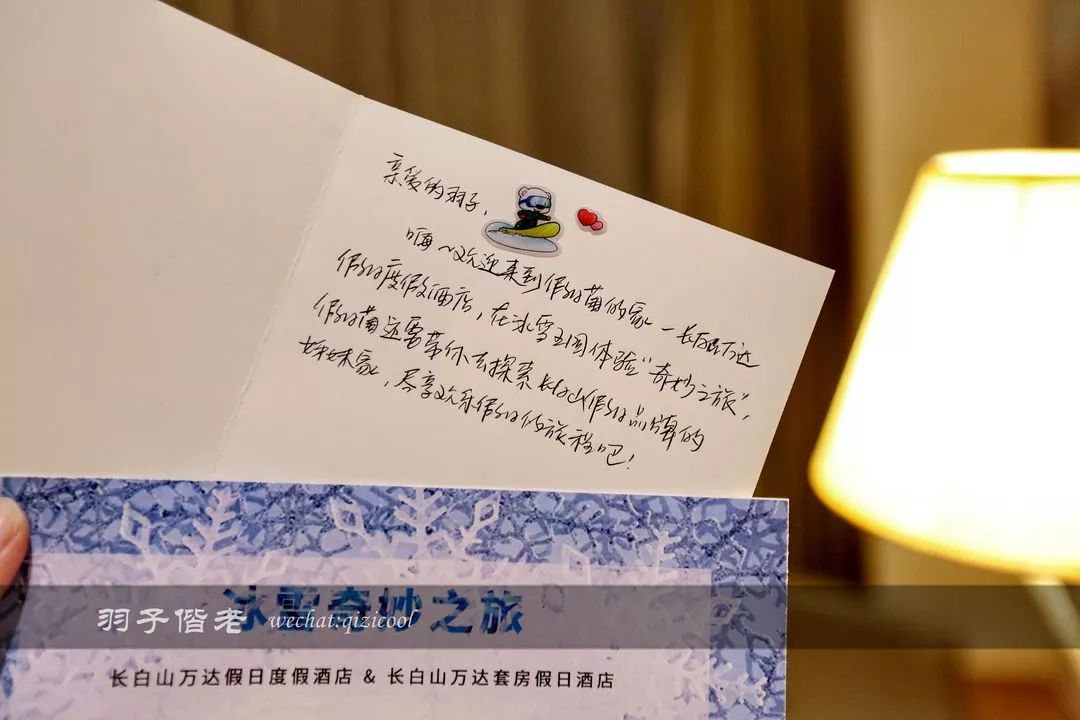 亲爱的羽子，
嗨~欢迎来到假日菌的家——长白山万达
假日度假酒店，在冰雪王国体验“奇妙之旅”，
假日菌还要带你去探索长白山假日品牌的
姊妹家，尽享欢乐假日的旅程吧！
冰雪奇妙之旅
羽子偕老 wechat:qizicool
长白山万达假日度假酒店 & 长白山万达套房假日酒店